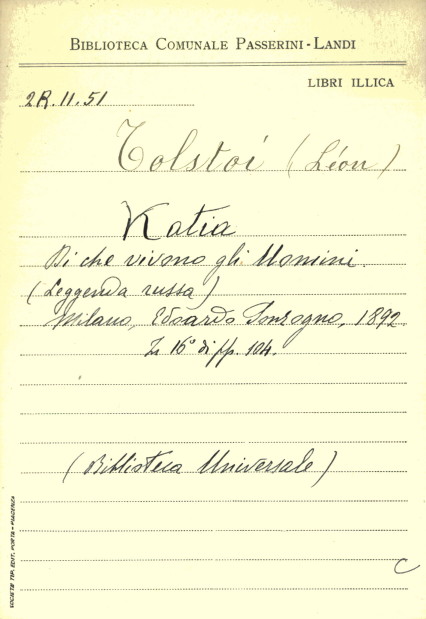 BIBLIOTECA COMUNALE PASSERINI-LANDI
LIBRI ILLICA
2R.11.51
Tolstoi (Léon)
Katia
Di che vivono gli Uomini.
(Leggenda russa)
Milano, Edoardo Sonzogno, 1892
In 16° di pp. 104.
(Biblioteca Universale)
C
SOCIETÀ TIP. EDIT. PORTA - PIACENZA